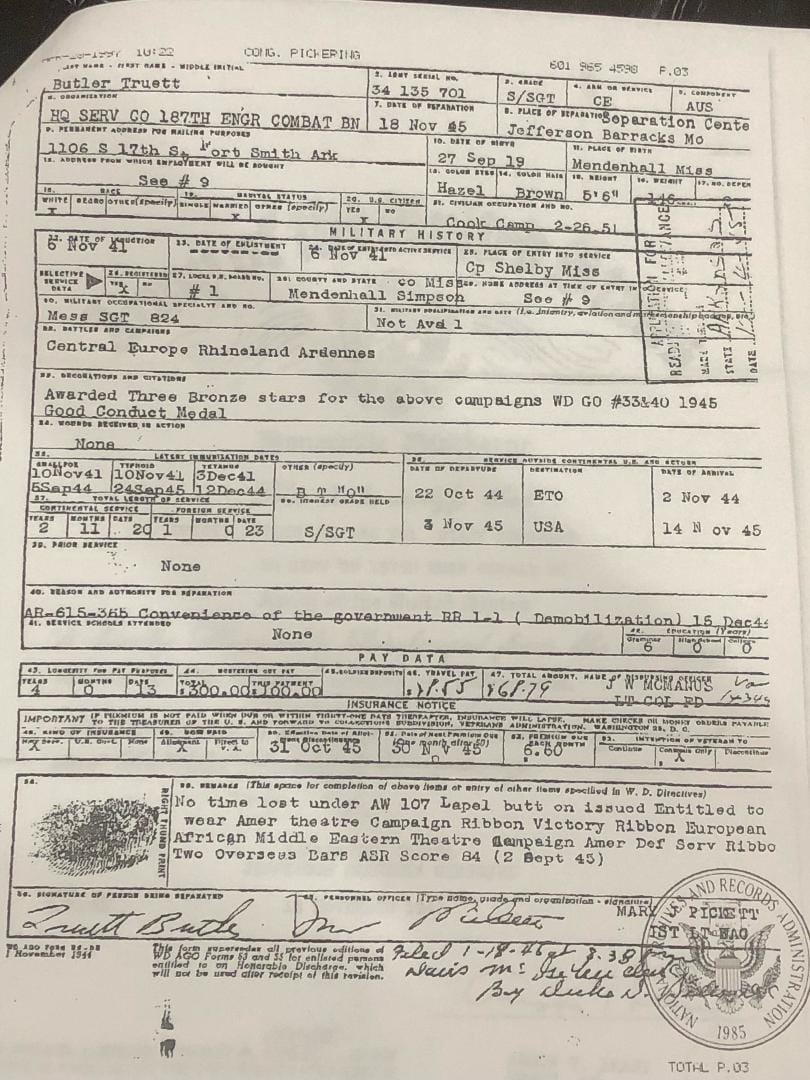 10:22 CONG. PICKERING 601 965 4598 P.03
LAST NAME - FIRST NAME - MIDDLE INITIAL
Butler Truett
2. ARMY SERIAL NO.
34 135 701
3. GRADE
S/SGT
4. ARM OR SERVICE
CE
5. COMPONENT
AUS
6. ORGANIZATION
HQ SERV CO 187TH ENGR COMBAT BN
7. DATE OF SEPARATION
18 Nov 45
8. PLACE OF SEPARATION
Separation Cente
Jefferson Barracks Mo
9. PERMANENT ADDRESS FOR MAILING PURPOSES
1106 S 17th St Fort Smith Ark
10. DATE OF BIRTH
27 Sep 19
11. PLACE OF BIRTH
Mendenhall Miss
12. ADDRESS FROM WHICH EMPLOYMENT WILL BE SOUGHT
See # 9
13. COLOR EYES
Hazel
14. COLOR HAIR
Brown
15. HEIGHT
5'6"
16. WEIGHT
17. NO. DEPEN
18. RACE
WHITE NEGRO OTHER (specify)
X
19. MARITAL STATUS
SINGLE MARRIED OTHER (specify)
X
20. U.S. CITIZEN
YES NO
X
21. CIVILIAN OCCUPATION AND NO.
Cook Camp 2-26.51
MILITARY HISTORY
22. DATE OF INDUCTION
6 Nov 41
23. DATE OF ENLISTMENT
24. DATE OF ENTRY INTO ACTIVE SERVICE
6 Nov 41
25. PLACE OF ENTRY INTO SERVICE
Cp Shelby Miss
SELECTIVE SERVICE DATA
26. REGISTERED
YES NO
X
27. LOCAL S.S. BOARD NO.
# 1
28. COUNTY AND STATE
co Miss
Mendenhall Simpson
29. HOME ADDRESS AT TIME OF ENTRY INTO SERVICE
See # 9
30. MILITARY OCCUPATIONAL SPECIALTY AND NO.
Mess SGT 824
31. MILITARY QUALIFICATION AND DATE (i.e. infantry, aviation and marksmanship badges, etc.
Not Ava l
32. BATTLES AND CAMPAIGNS
Central Europe Rhineland Ardennes
33. DECORATIONS AND CITATIONS
Awarded Three Bronze stars for the above campaigns WD GO #33&40 1945
Good Conduct Medal
34. WOUNDS RECEIVED IN ACTION
None
APPLICATION FOR
STATE ARKANSAS
DATE
35. LATEST IMMUNIZATION DATES
SMALLPOX TYPHOID TETANUS OTHER (specify)
10Nov41 10Nov41 3Dec41
5Sep44 24Sep45 12Dec44 B T "O"
36. SERVICE OUTSIDE CONTINENTAL U.S. AND RETURN
DATE OF DEPARTURE DESTINATION DATE OF ARRIVAL
22 Oct 44 ETO 2 Nov 44
3 Nov 45 USA 14 N ov 45
37. TOTAL LENGTH OF SERVICE
CONTINENTAL SERVICE FOREIGN SERVICE
YEARS MONTHS DAYS YEARS MONTHS DAYS
2 11 20 1 0 23
38. HIGHEST GRADE HELD
S/SGT
39. PRIOR SERVICE
None
40. REASON AND AUTHORITY FOR SEPARATION
AR-615-365 Convenience of the government RR 1-1 ( Demobilization) 15 Dec44
41. SERVICE SCHOOLS ATTENDED
None
42. EDUCATION (Years)
Grammar High School College
6 0 0
PAY DATA
43. LONGEVITY FOR PAY PURPOSES
YEARS MONTHS DAYS
4 0 13
44. MUSTERING OUT PAY
TOTAL THIS PAYMENT
300.00 100.00
45. SOLDIER DEPOSITS
46. TRAVEL PAY
47. TOTAL AMOUNT, NAME OF DISBURSING OFFICER
168.79 J W MCMANUS
LT COL FD
INSURANCE NOTICE
IMPORTANT IF PREMIUM IS NOT PAID WHEN DUE OR WITHIN THIRTY-ONE DAYS THEREAFTER, INSURANCE WILL LAPSE. MAKE CHECKS OR MONEY ORDERS PAYABLE
TO THE TREASURER OF THE U. S. AND FORWARD TO COLLECTIONS SUBDIVISION, VETERANS ADMINISTRATION, WASHINGTON 25, D. C.
48. KIND OF INSURANCE
Nat. Serv. U.S. Govt. None
X
49. HOW PAID
Allotment Direct to V. A.
X
50. Effective Date of Allotment Discontinuance
31 Oct 45
51. Date of Next Premium Due (One month after 50)
30 Nov 45
52. PREMIUM DUE EACH MONTH
6.60
53. INTENTION OF VETERAN TO
Continue Continue Only Discontinue
X
54.
RIGHT THUMB PRINT
55. REMARKS (This space for completion of above items or entry of other items specified in W. D. Directives)
No time lost under AW 107 Lapel butt on issued Entitled to
wear Amer theatre Campaign Ribbon Victory Ribbon European
African Middle Eastern Theatre Campaign Amer Def Serv Ribbo
Two Overseas Bars ASR Score 84 (2 Sept 45)
56. SIGNATURE OF PERSON BEING SEPARATED
Truett Butler
57. PERSONNEL OFFICER (Type name, grade and organization - signature)
MARY PICKETT
1ST LT WAC
WD AGO FORM 53-55
1 November 1944
This form supersedes all previous editions of
WD AGO Forms 53 and 55 for enlisted persons
entitled to an Honorable Discharge, which
will not be used after receipt of this revision.
Filed 1-18-46 at 3:38 PM
By
NATIONAL ARCHIVES AND RECORDS ADMINISTRATION
1985
TOTAL P.03